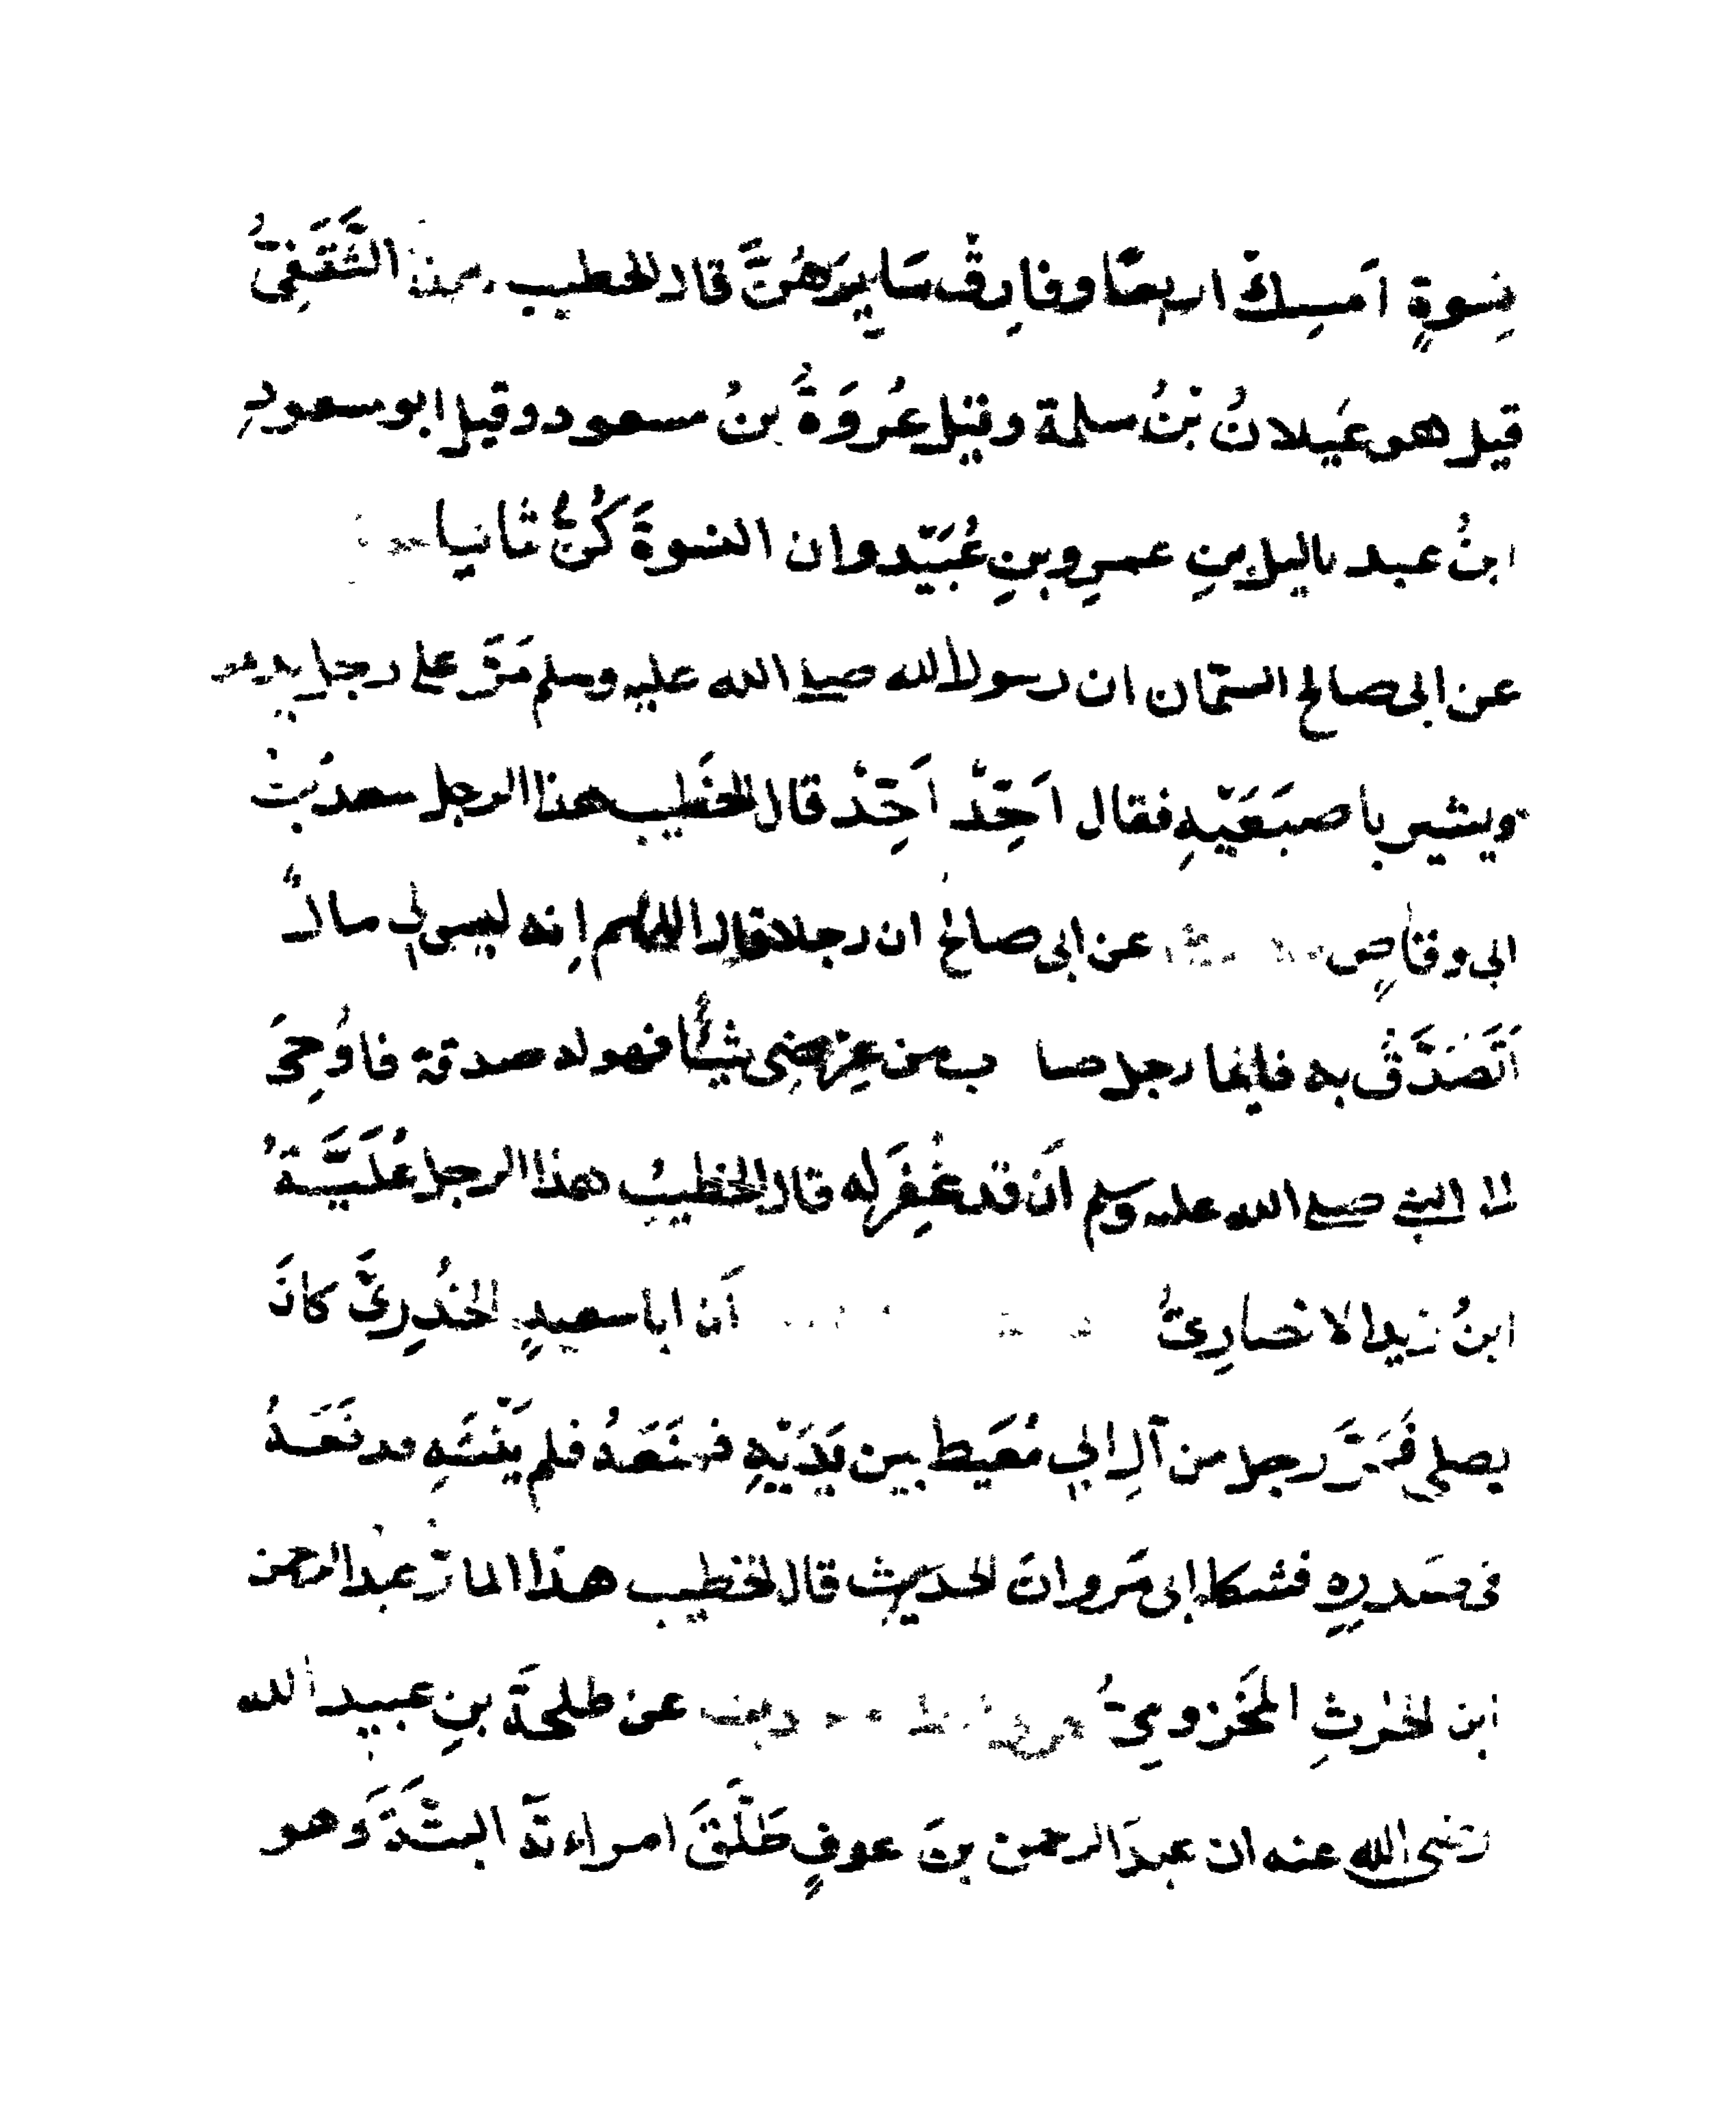 نِسوةٍ اَمسِكْ اربعًا وفارِقْ سَايِرَهُنَّ قال الخطيب هذا الثَّقَفِىُّ
قيل هو غَيلانُ بْنُ سلمة وقيل عُروَةُ بنُ مسعود وقيل ابو مسعودِ
ابنُ عبد ياليل بنِ عمرِو بنِ عُبَيْد وان النسوةَ كُنَّ ثمانيا
عن ابى صالح السمّان ان رسول الله صلى الله عليه وسلم مَرَّ على رجل يدعو
ويشير باصبَعَيْهِ فقال اَحِّدْ اَحِّدْ قال الخَطيب هذا الرجل سعدُ بْنُ
ابى وقاصٍ عن ابى صالحْ ان رجلا قال اللهم اِنه ليس لى مالٌ
اَتَصَدَّقُ به فايما رجل صا ب من عِرْضِى شيئًا فهو له صدقة فاُوحِىَ
الى النبى صلى الله عليه وسلم اَنْ قد غُفِرَ له قال الخطيبُ هذا الرجل عُلَيَّةُ
ابنُ زيد الانصارِىُّ اَن ابا سعيدٍ الخُدْرِىَّ كانَ
يصلى فَمَرَّ رجل من آلِ ابي مُعَيط بين يَدَيْهِ فمنَعَهُ فلم يَنْتَهِ فدفَعَهُ
فى صَدرِهِ فشكا الى مَروانَ الحديث قال الخطيب هذا المارّ عبدُ الرحمن
ابن الحٰرثِ المَخْزومِىُّ عن طلحَةَ بنِ عبيد الله
رضى الله عنه ان عبدَ الرحمن بنَ عوفٍ طَلَّقَ امراءتَهُ البتَّةَ وَهو